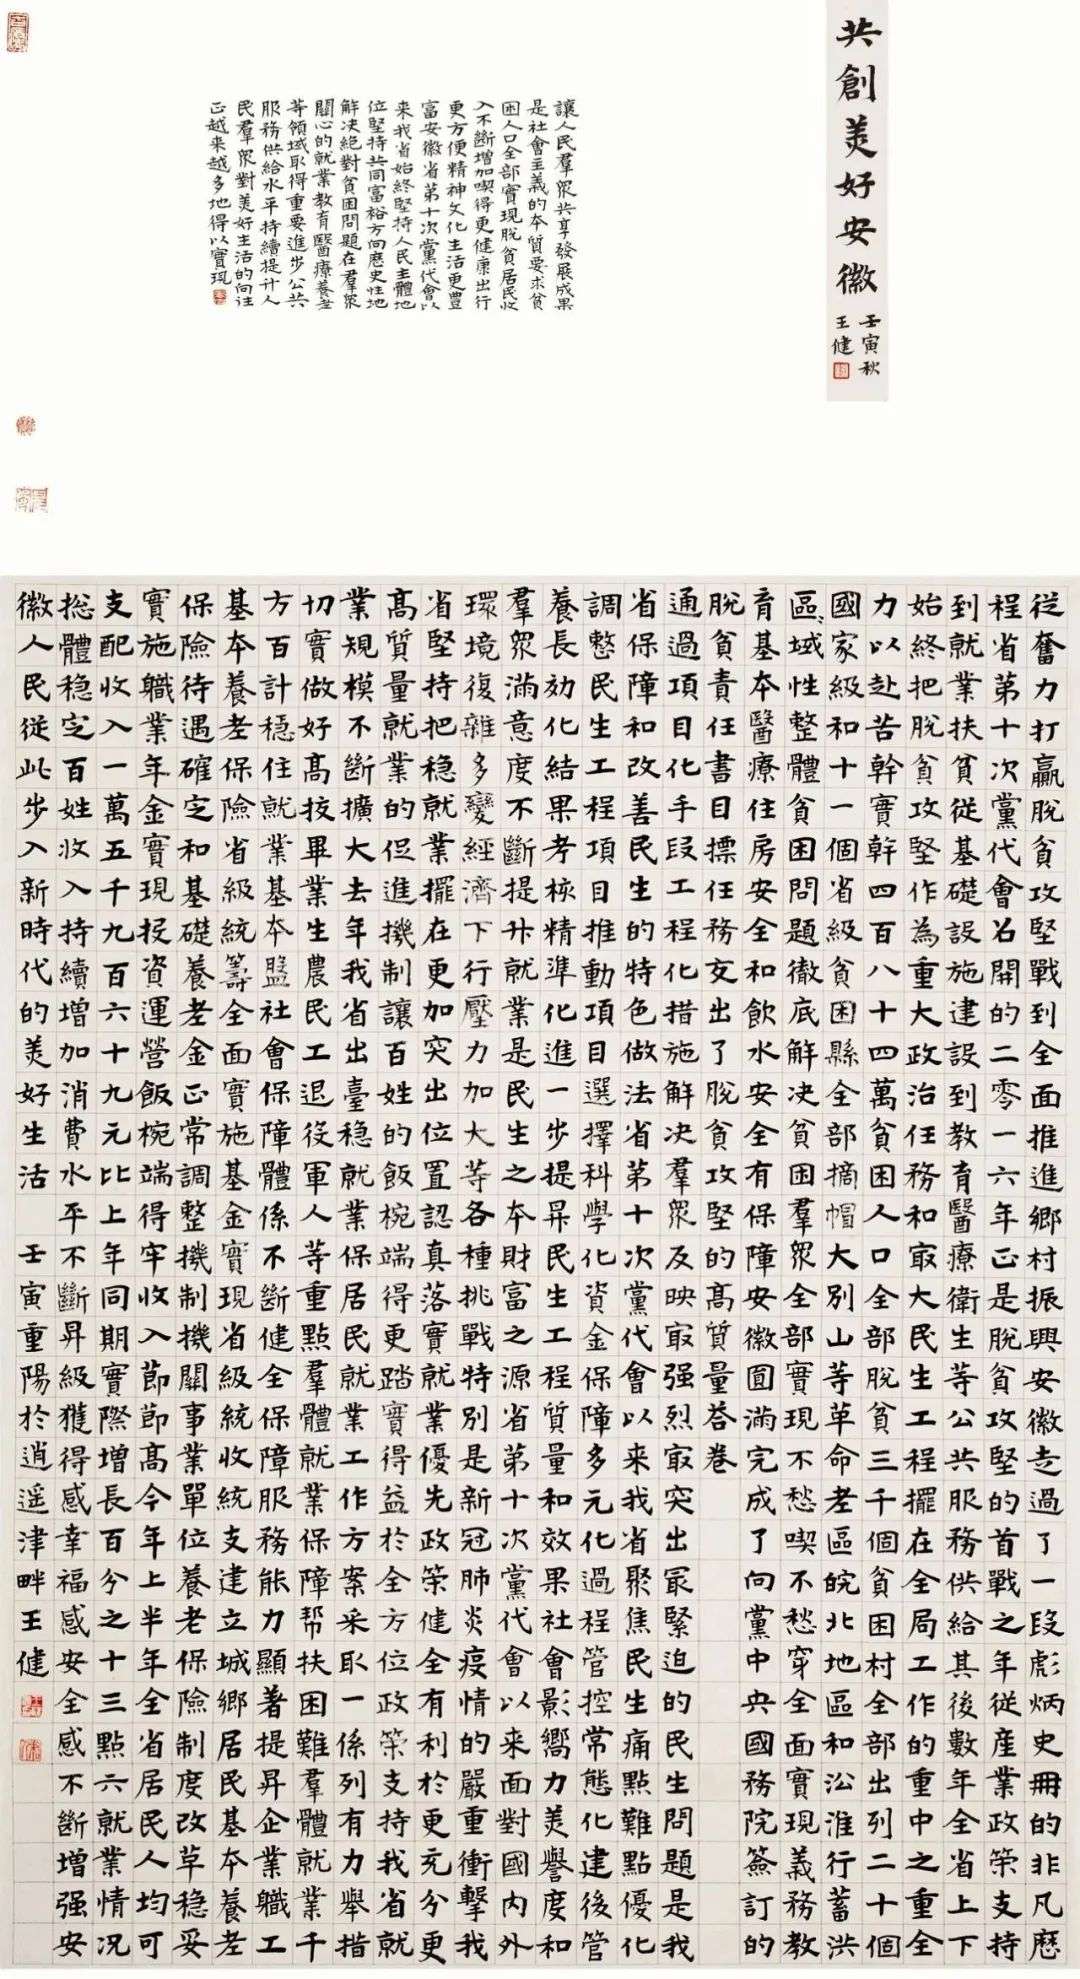 共創美好安徽
壬寅秋
王健
讓人民羣眾共享發展成果
是社會主義的本質要求貧
困人口全部實現脫貧居民收
入不斷增加喫得更健康出行
更方便精神文化生活更豐
富安徽省第十次黨代會以
來我省始終堅持人民主體地
位堅持共同富裕方向歷史性地
解决絕對貧困問題在羣眾
關心的就業教育醫療養老
等領域取得重要進步公共
服務供給水平持續提升人
民羣眾對美好生活的向往
正越來越多地得以實現
從奮力打贏脫貧攻堅戰到全面推進鄉村振興安徽走過了一段彪炳史冊的非凡歷
程省第十次黨代會召開的二零一六年正是脫貧攻堅的首戰之年從產業政策支持
到就業扶貧從基礎設施建設到教育醫療衛生等公共服務供給其後數年全省上下
始終把脫貧攻堅作為重大政治任務和最大民生工程擺在全局工作的重中之重全
力以赴苦幹實幹四百八十四萬貧困人口全部脫貧三千個貧困村全部出列二十個
國家級和十一個省級貧困縣全部摘帽大別山等革命老區皖北地區和沿淮行蓄洪
區域性整體貧困問題徹底解决貧困羣眾全部實現不愁喫不愁穿全面實現義務教
育基本醫療住房安全和飲水安全有保障安徽圓滿完成了向黨中央國務院簽訂的
脫貧責任書目標任務交出了脫貧攻堅的高質量答卷
通過項目化手段工程化措施解决羣眾反映最强烈最突出最緊迫的民生問題是我
省保障和改善民生的特色做法省第十次黨代會以來我省聚焦民生痛點難點優化
調整民生工程項目推動項目選擇科學化資金保障多元化過程管控常態化建後管
養長効化結果考核精準化進一步提昇民生工程質量和效果社會影嚮力美譽度和
羣眾滿意度不斷提升就業是民生之本財富之源省第十次黨代會以來面對國內外
環境復雜多變經濟下行壓力加大等各種挑戰特別是新冠肺炎疫情的嚴重衝擊我
省堅持把穩就業擺在更加突出位置認真落實就業優先政策健全有利於更充分更
高質量就業的促進機制讓百姓的飯椀端得更踏實得益於全方位政策支持我省就
業規模不斷擴大去年我省出臺穩就業保居民就業工作方案采取一係列有力舉措
切實做好高校畢業生農民工退役軍人等重點羣體就業保障帮扶困難羣體就業千
方百計穩住就業基本盤社會保障體係不斷健全保障服務能力顯著提昇企業職工
基本養老保險省級統籌全面實施基金實現省級統收統支建立城鄉居民基本養老
保險待遇確定和基礎養老金正常調整機制機關事業單位養老保險制度改革穩妥
實施職業年金實現投資運營飯椀端得牢收入節節高今年上半年全省居民人均可
支配收入一萬五千九百六十九元比上年同期實際增長百分之十三點六就業情況
總體穩定百姓收入持續增加消費水平不斷昇級獲得感幸福感安全感不斷增强安
徽人民從此步入新時代的美好生活 壬寅重陽於逍遙津畔王健